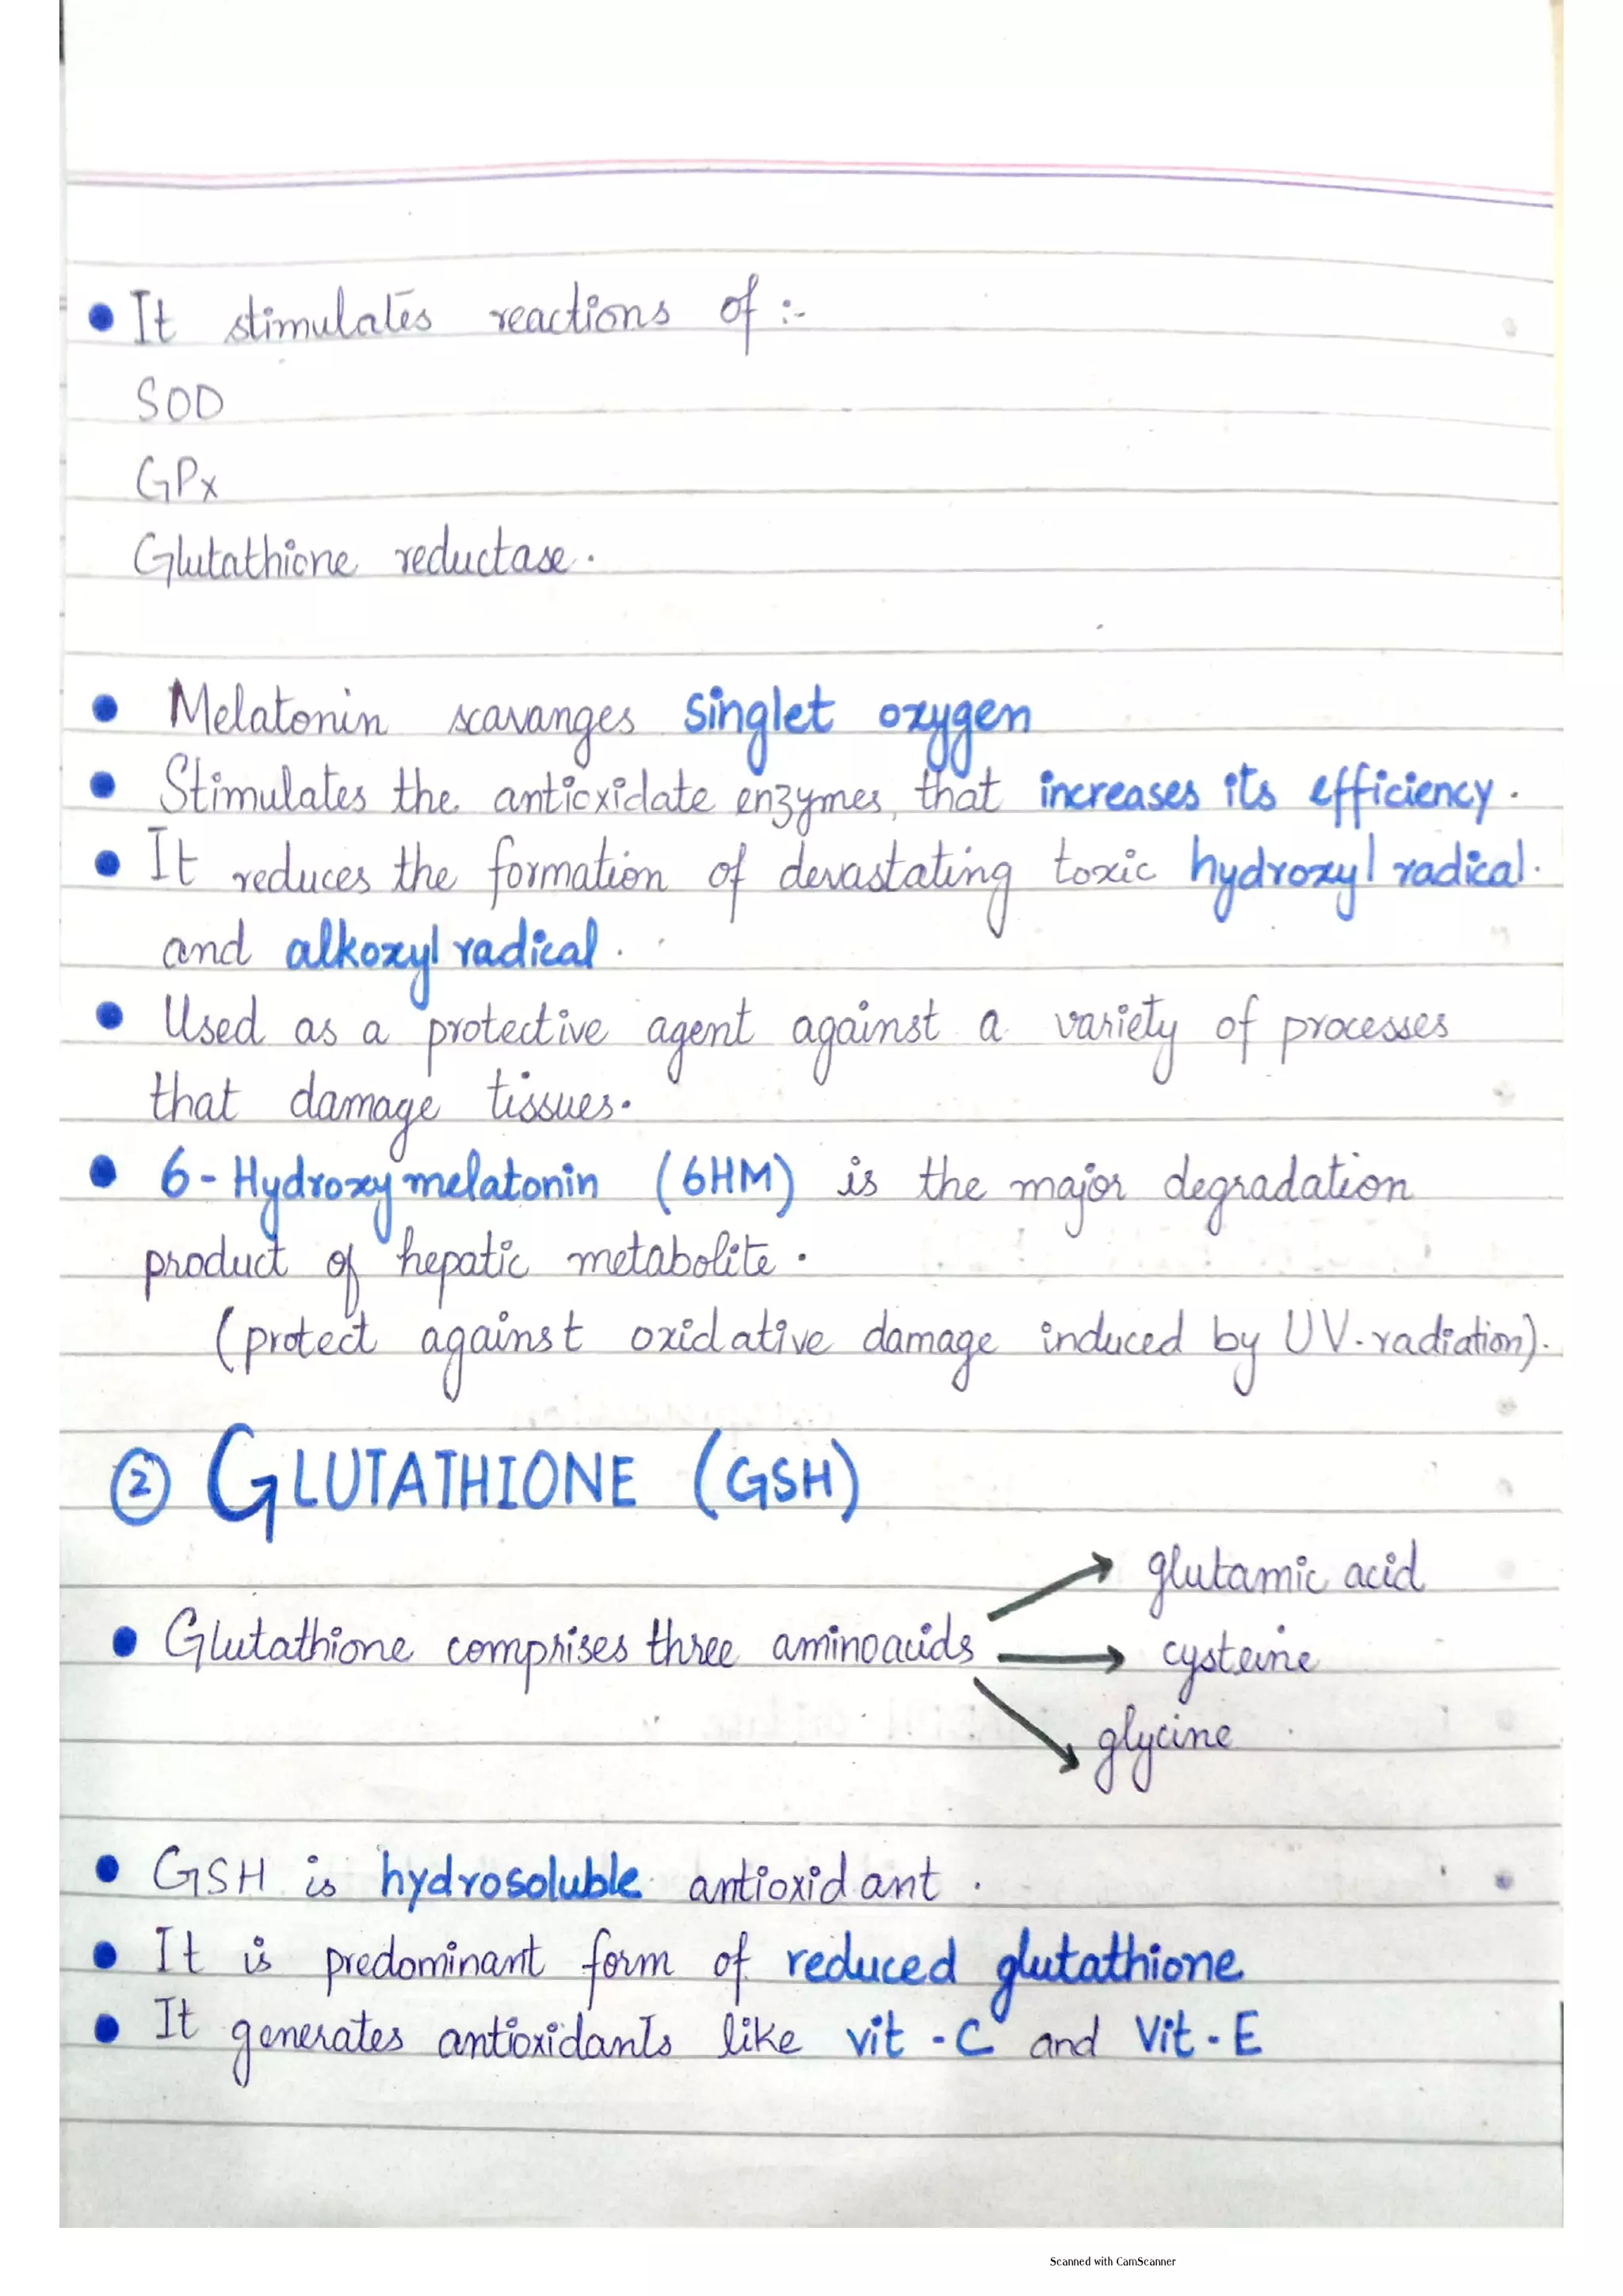 • It stimulates reactions of :-
SOD
GPx
Glutathione reductase.
• Melatonin scavanges singlet oxygen
• Stimulates the antioxidate enzymes, that increases its efficiency.
• It reduces the formation of devastating toxic hydroxyl radical.
and alkoxyl radical.
• Used as a protective agent against a variety of processes
that damage tissues.
• 6-Hydroxymelatonin (6HM) is the major degradation
product of hepatic metabolite.
(protect against oxidative damage induced by UV-radiation).
② GLUTATHIONE (GSH)
glutamic acid
• Glutathione comprises three aminoacids → cysteine
glycine
• GSH is hydrosoluble antioxidant.
• It is predominant form of reduced glutathione
• It generates antioxidants like vit-C and Vit-E
Scanned with CamScanner